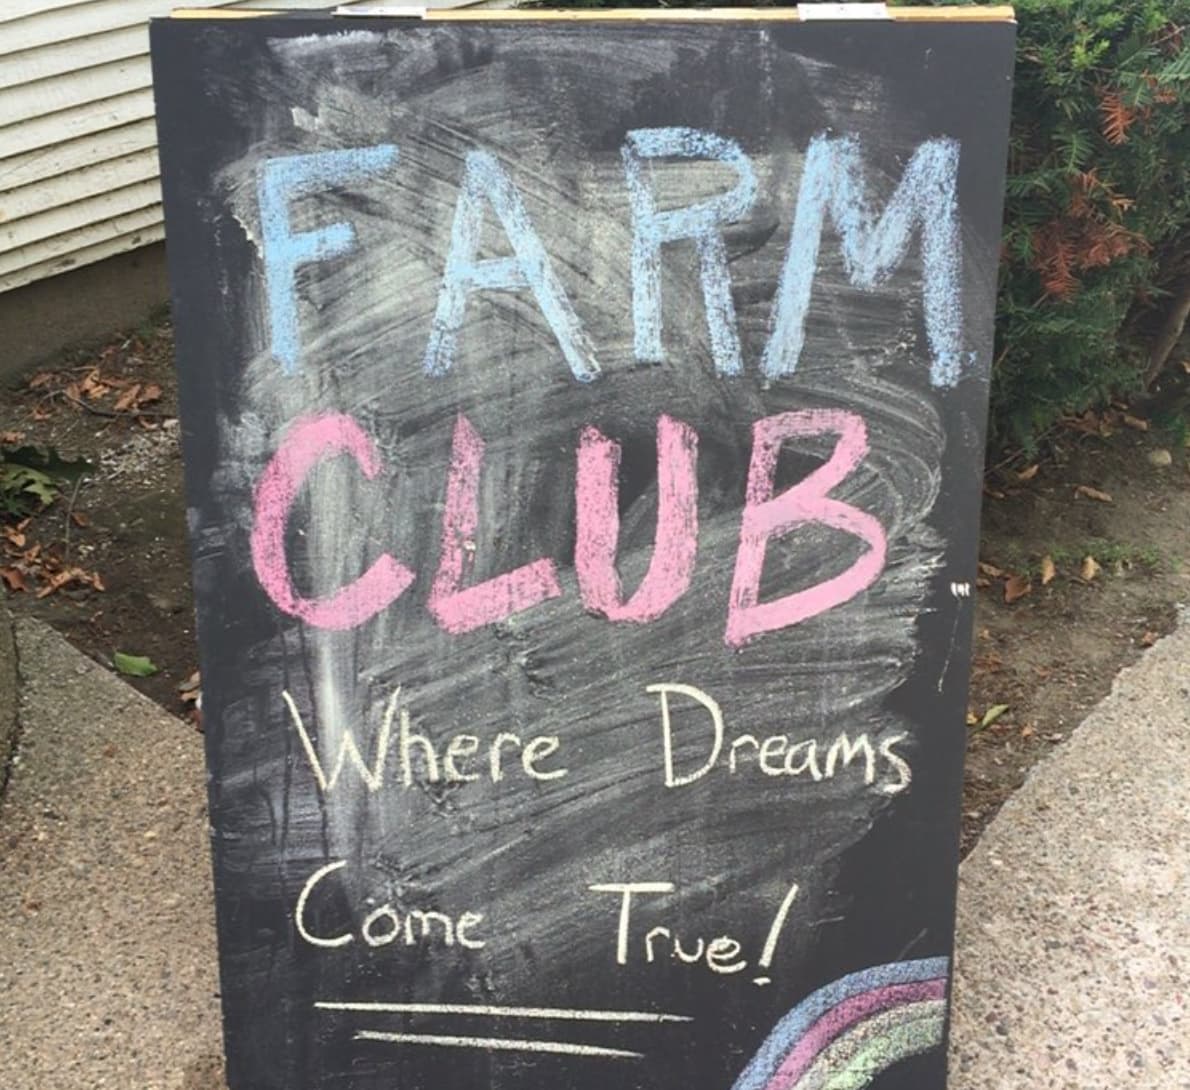 FARM
CLUB
Where Dreams
Come True!